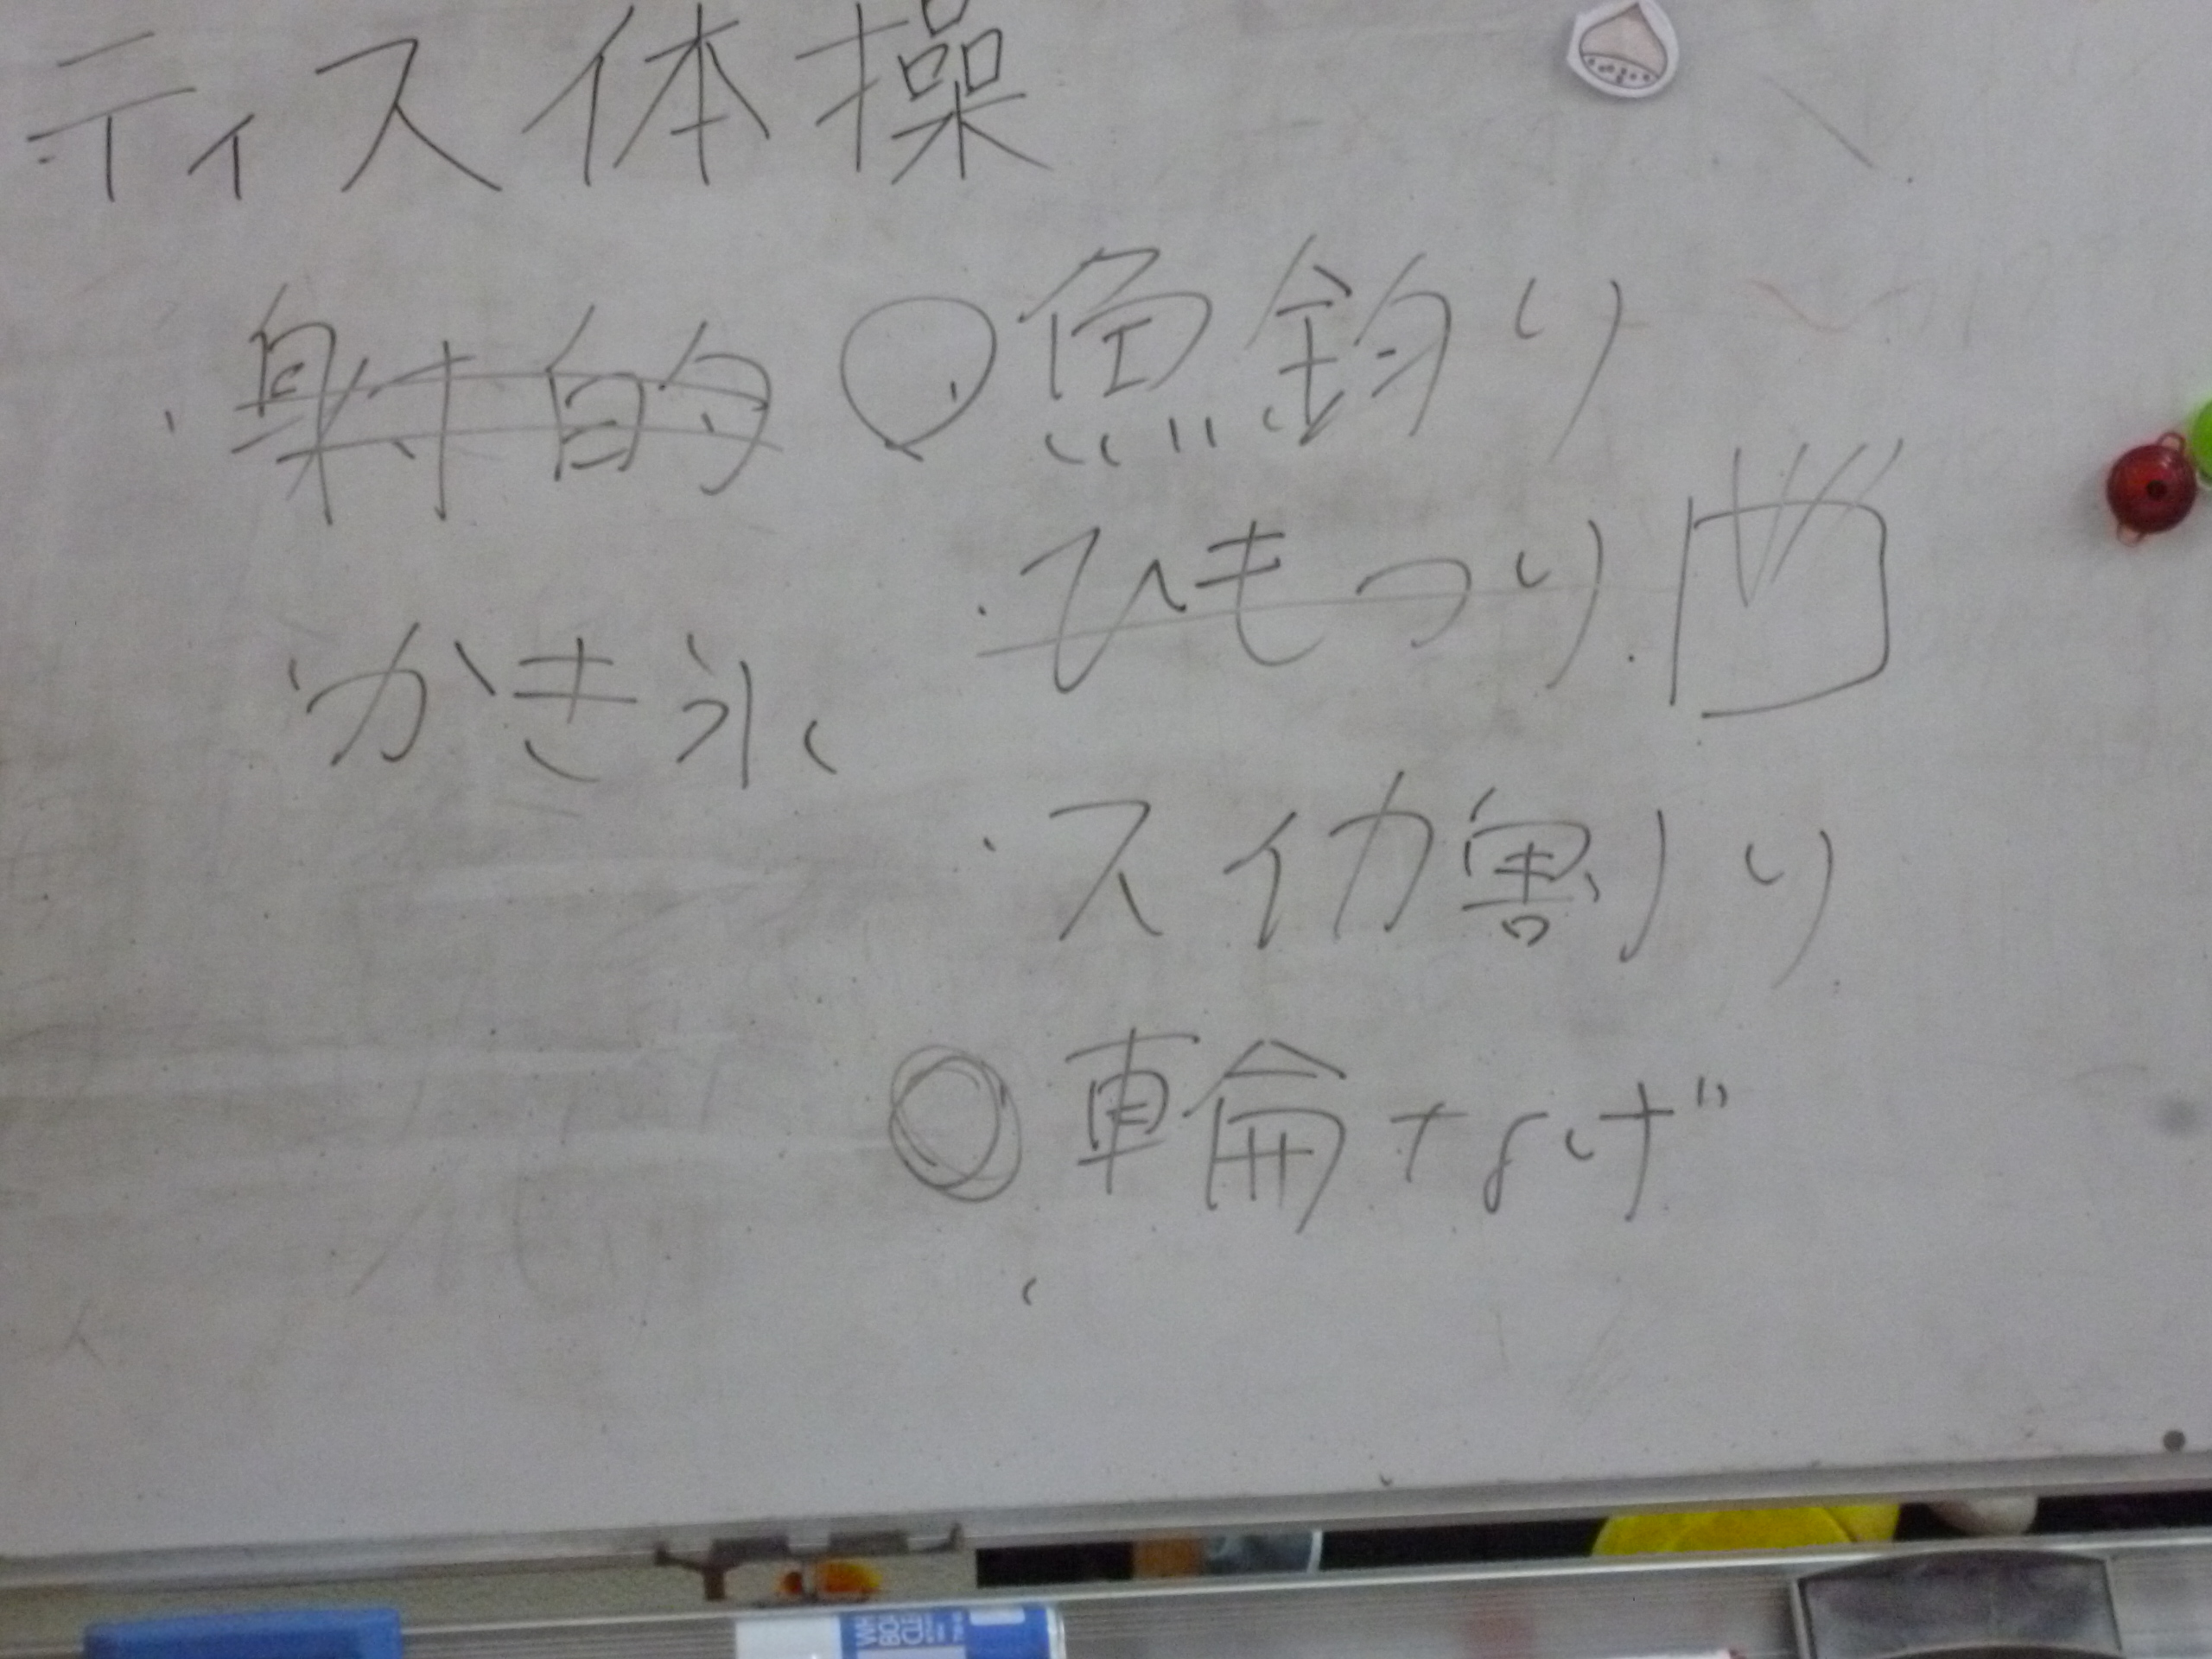 ティス体操
・射的
○魚釣り
・ひもつり
かき氷
・スイカ割り
◎輪なげ